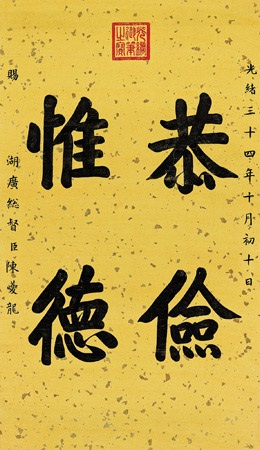 光緒御筆之寶
光緒三十四年十月初十日
恭儉
惟德
賜
湖廣總督臣陳夔龍